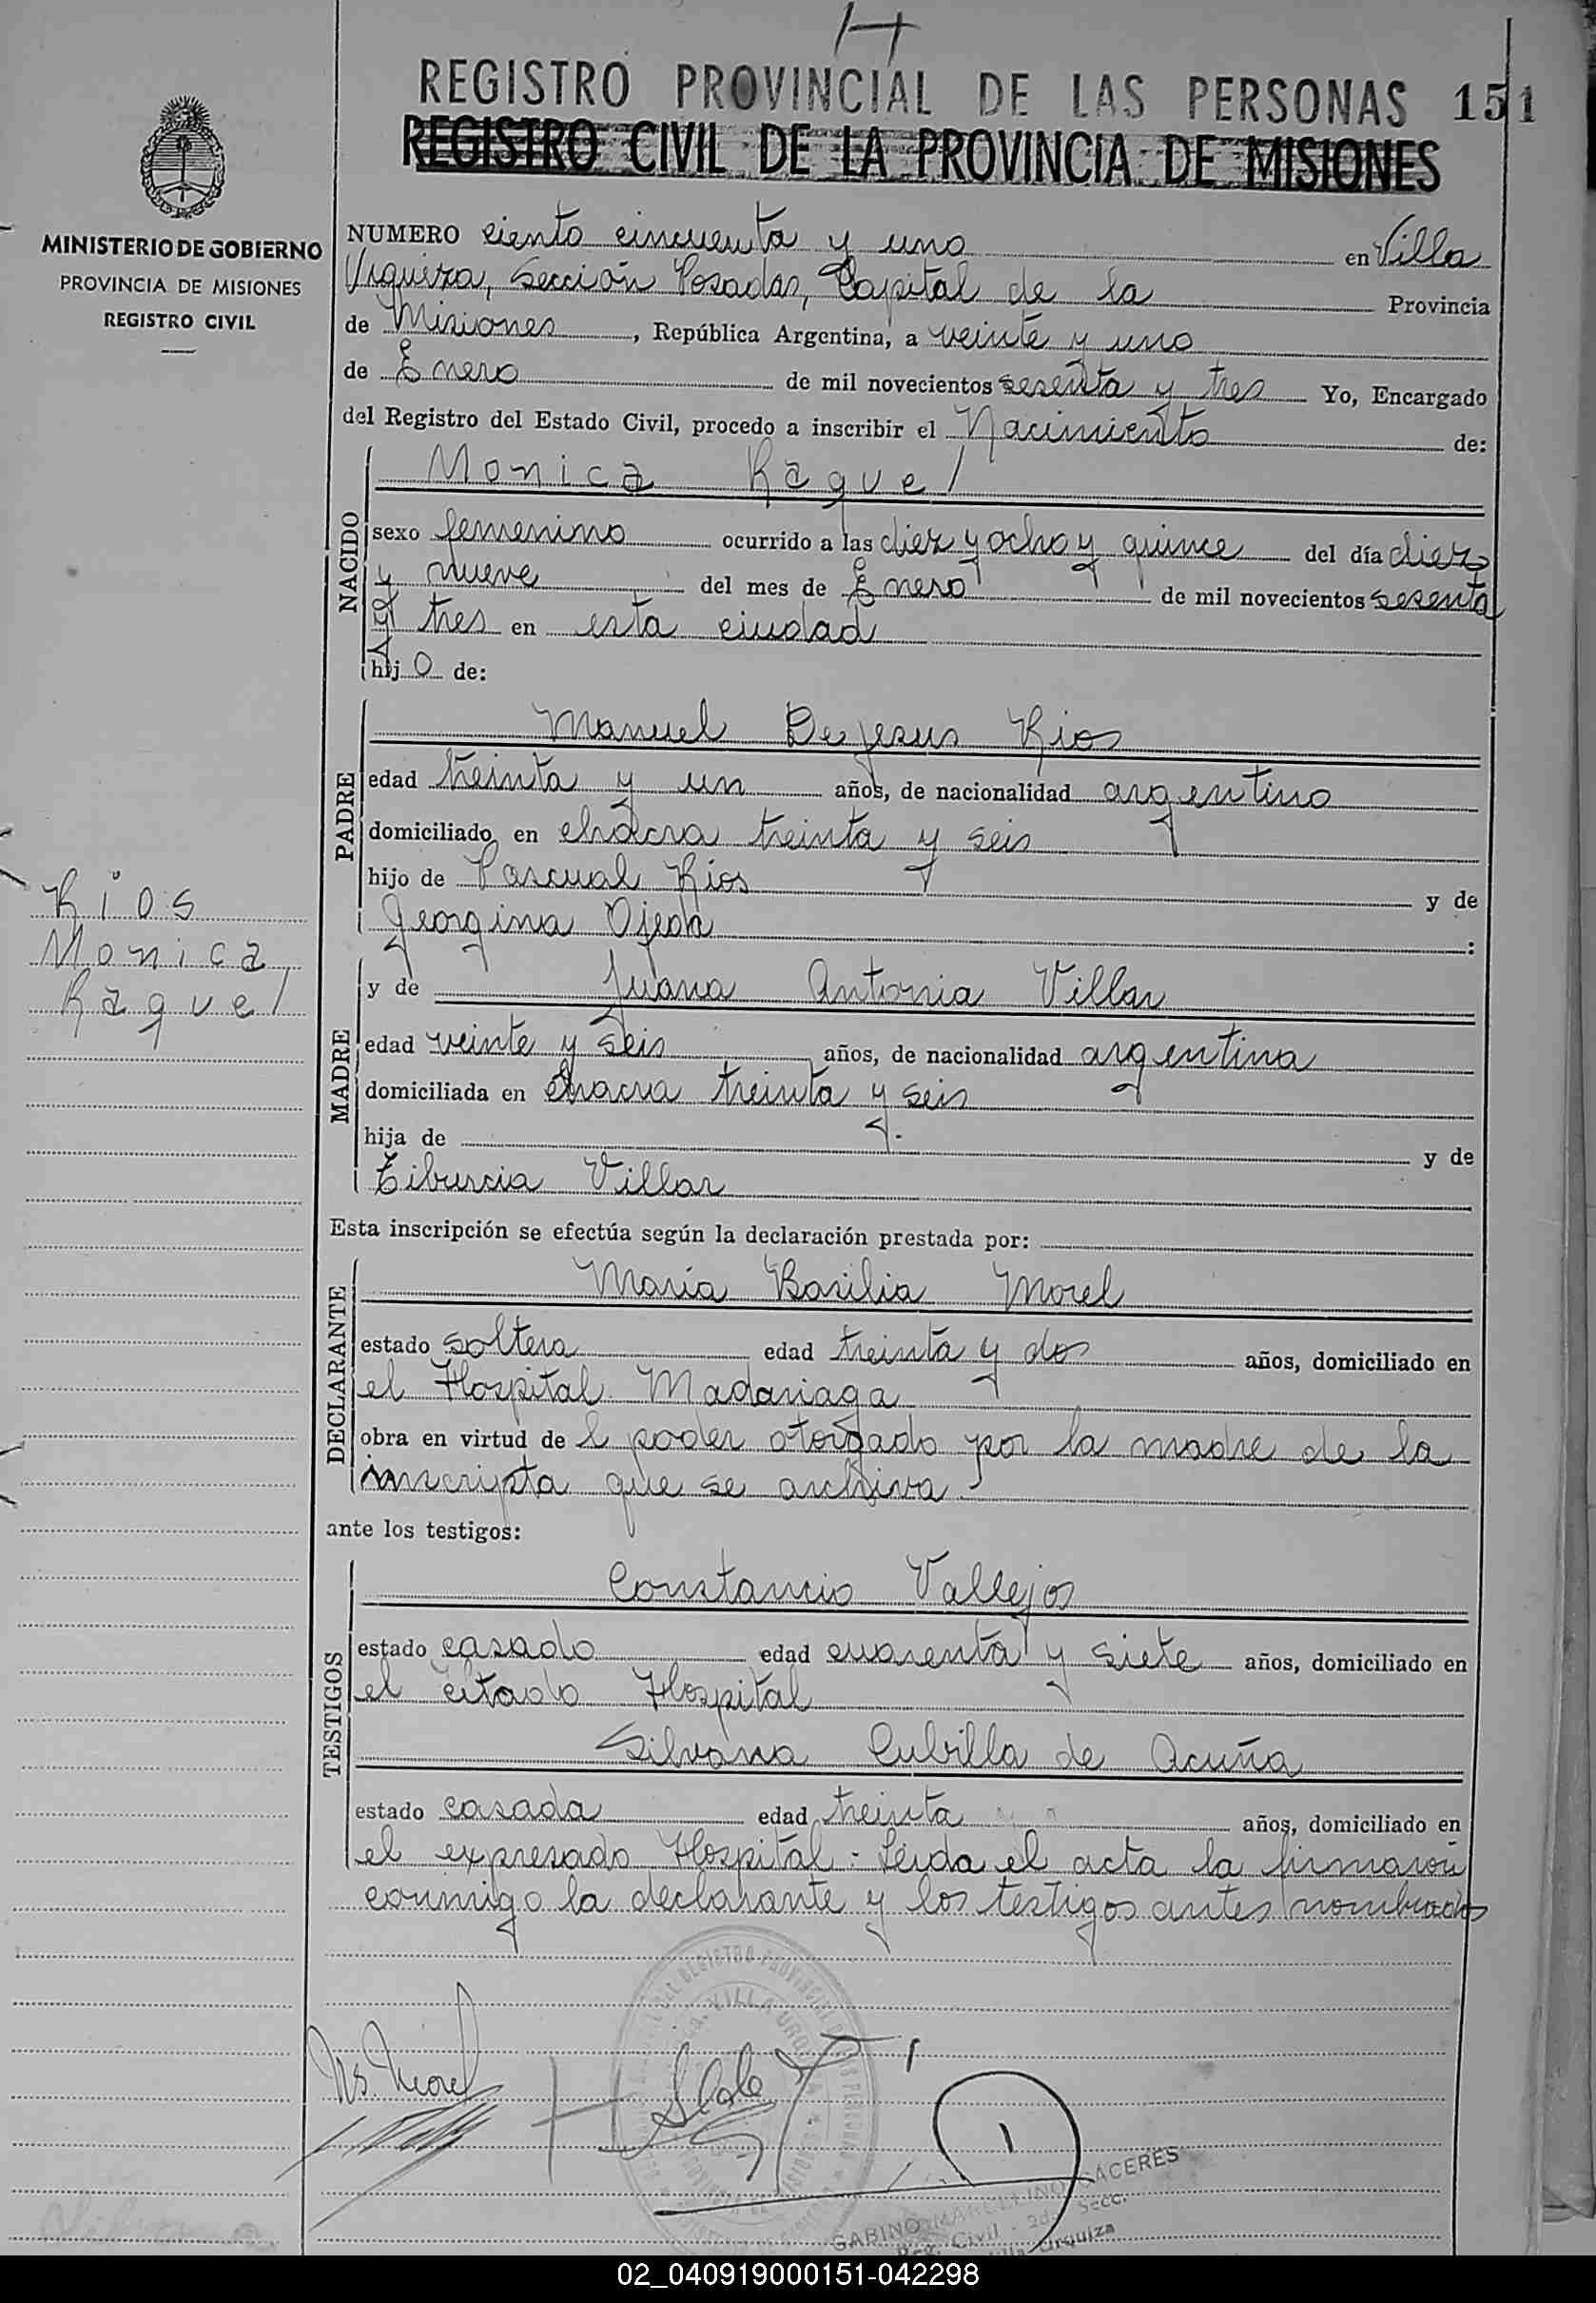 H
REGISTRO PROVINCIAL DE LAS PERSONAS 151
REGISTRO CIVIL DE LA PROVINCIA DE MISIONES
MINISTERIO DE GOBIERNO
PROVINCIA DE MISIONES
REGISTRO CIVIL
NUMERO ciento cincuenta y uno en Villa
Urquiza, Sección Posadas, Capital de la Provincia
de Misiones, República Argentina, a veinte y uno
de Enero de mil novecientos sesenta y tres Yo, Encargado
del Registro del Estado Civil, procedo a inscribir el Nacimiento de:
NACIDO
Monica Raquel
sexo femenino ocurrido a las diez y ocho y quince del día diez
y nueve del mes de Enero de mil novecientos sesenta
y tres en esta ciudad
hij o de:
PADRE
Manuel De Jesus Rios
edad treinta y un años, de nacionalidad argentino
domiciliado en chacra treinta y seis
hijo de Pascual Rios y de
Georgina Ojeda :
Rios
Monica
Raquel
MADRE
y de Juana Antonia Villar
edad veinte y seis años, de nacionalidad argentina
domiciliada en chacra treinta y seis
hija de y de
Tiburcia Villar
Esta inscripción se efectúa según la declaración prestada por:
DECLARANTE
María Basilia Morel
estado soltera edad treinta y dos años, domiciliado en
el Hospital Madariaga
obra en virtud de l poder otorgado por la madre de la
inscripta que se archiva
ante los testigos:
TESTIGOS
Constancio Vallejos
estado casado edad cuarenta y siete años, domiciliado en
el citado Hospital
Silvana Cubilla de Acuña
estado casada edad treinta años, domiciliado en
el expresado Hospital.- Leida el acta la firmaron
conmigo la declarante y los testigos antes nombrados
Morel
GABINO MARCELINO CACERES
Reg. Civil - 2da. Secc.
Villa Urquiza
02_040919000151-042298